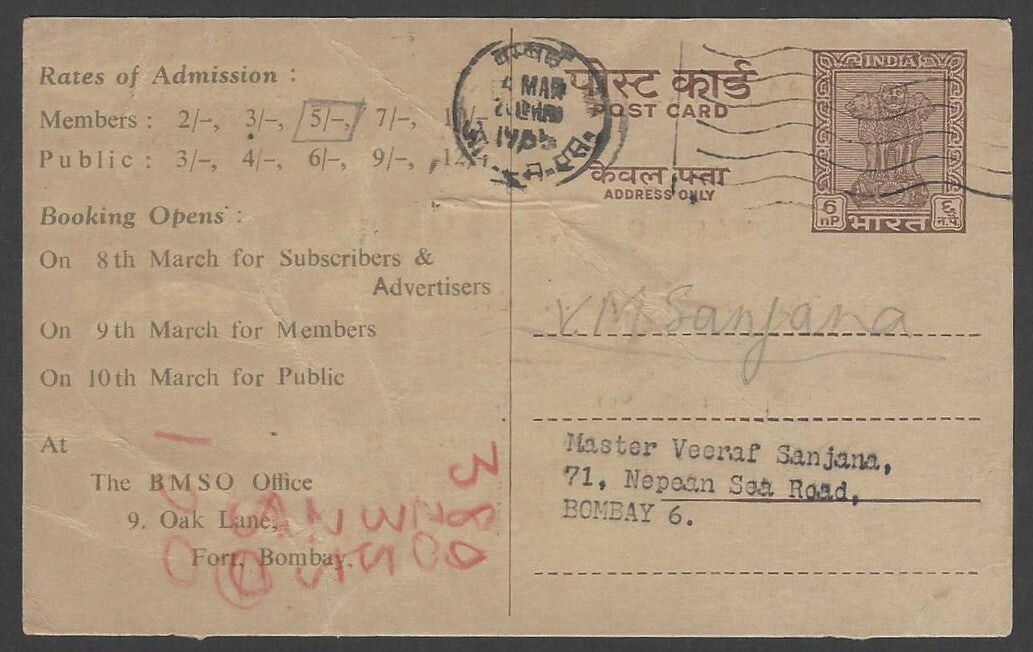 Rates of Admission :
Members : 2/–, 3/–, 5/–, 7/–,
Public : 3/–, 4/–, 6/–, 9/–, 12/–
Booking Opens :
On 8th March for Subscribers &
Advertisers
On 9th March for Members
On 10th March for Public
At
The BMSO Office
9. Oak Lane,
Fort, Bombay.
MAR
पोस्ट कार्ड
POST CARD
केवल पता
ADDRESS ONLY
INDIA
6 nP
भारत
६ न.पै.
V. M Sanjana
Master Veeraf Sanjana,
71, Nepean Sea Road,
BOMBAY 6.